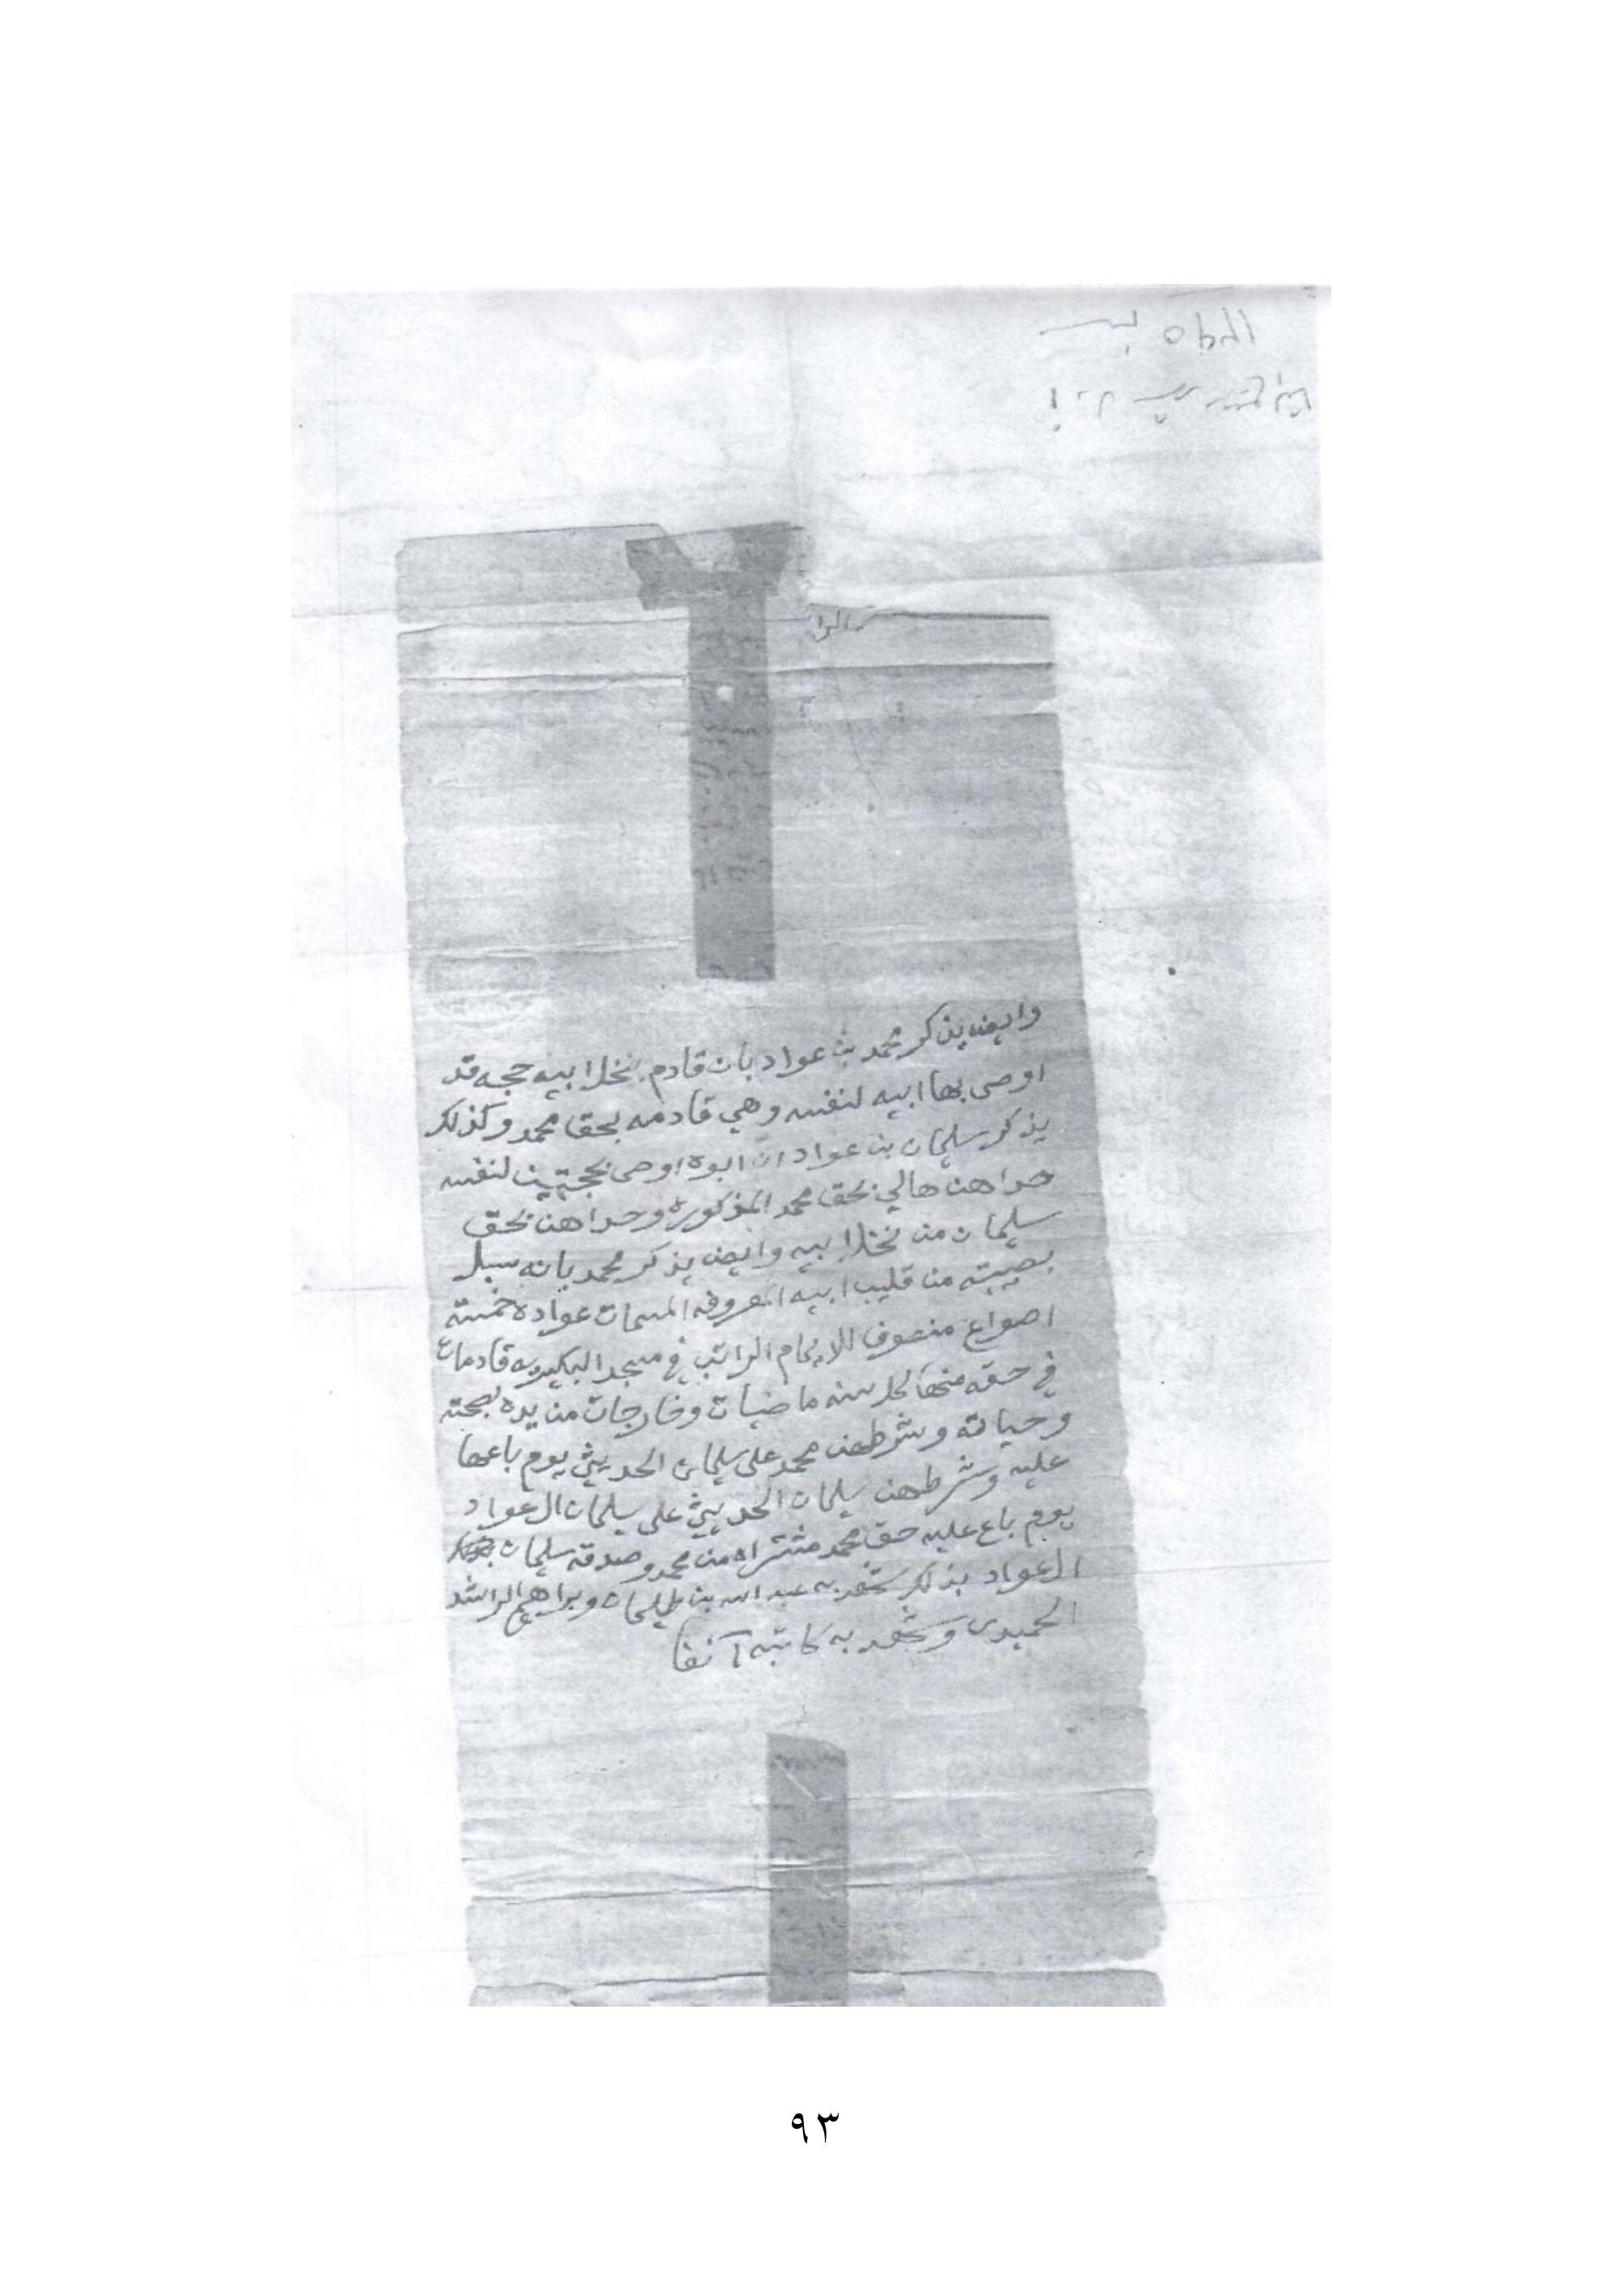 وايضه يذكر محمد بن عواد بان قادم بنخل ابيه حجه قد
اوصى بها ابيه لنفسه وهي قادمه بحق محمد وكذلك
يذكر سليمان بن عواد ان ابوه اوصى بحجتين لنفسه
حداهن هالي بحق محمد المذكوره وحداهن بحق
سليمان من نخل ابيه وايضه يذكر محمد بانه سبل
نصيبته من قليب ابيه المعروفه المسمات عواده خمسة
اصواع منصوف للامام الراتب في مسجد البكيريه قادمات
في حقه منها كل سنه ماضيات وخارجات من يده بصحته
وحياته وشرطهن محمد على سليمان الحديثي يوم باعها
عليه وشرطهن سليمان الحديثي على سليمان ال عواد
يوم باع عليه حق محمد مشتراه من محمد وصدقه سليمان
ال عواد بذلك شهد به عبد الله بن سليمان وبراهيم الراشد
الحميدي وشهد به كاتبه آنفا
٩٣